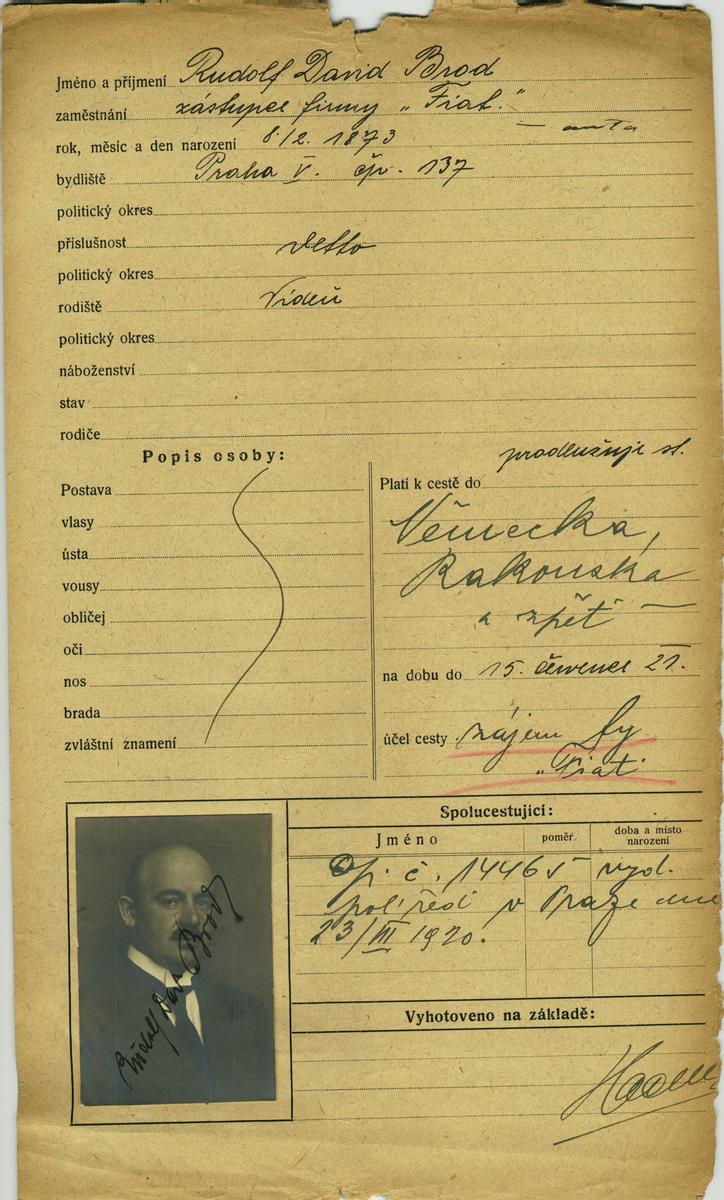 Jméno a příjmení Rudolf David Brod
zaměstnání zástupce firmy „Fiat."
— auta
rok, měsíc a den narození 8/2. 1873
bydliště Praha V. čp. 137
politický okres
příslušnost detto
politický okres
rodiště Vídeň
politický okres
náboženství
stav
rodiče
Popis osoby:
Postava
vlasy
ústa
vousy
obličej
oči
nos
brada
zvláštní znamení
prodlužuje se.
Platí k cestě do
Německa,
Rakouska
a zpět —
na dobu do 15. července 21.
účel cesty zájem fy
„Fiat"
Spolucestující:
Jméno poměr doba a místo narození
č. 14465 vyd.
pol. řed. v Praze dne
23/III 1920.
Vyhotoveno na základě:
Rudolf Dav Brod